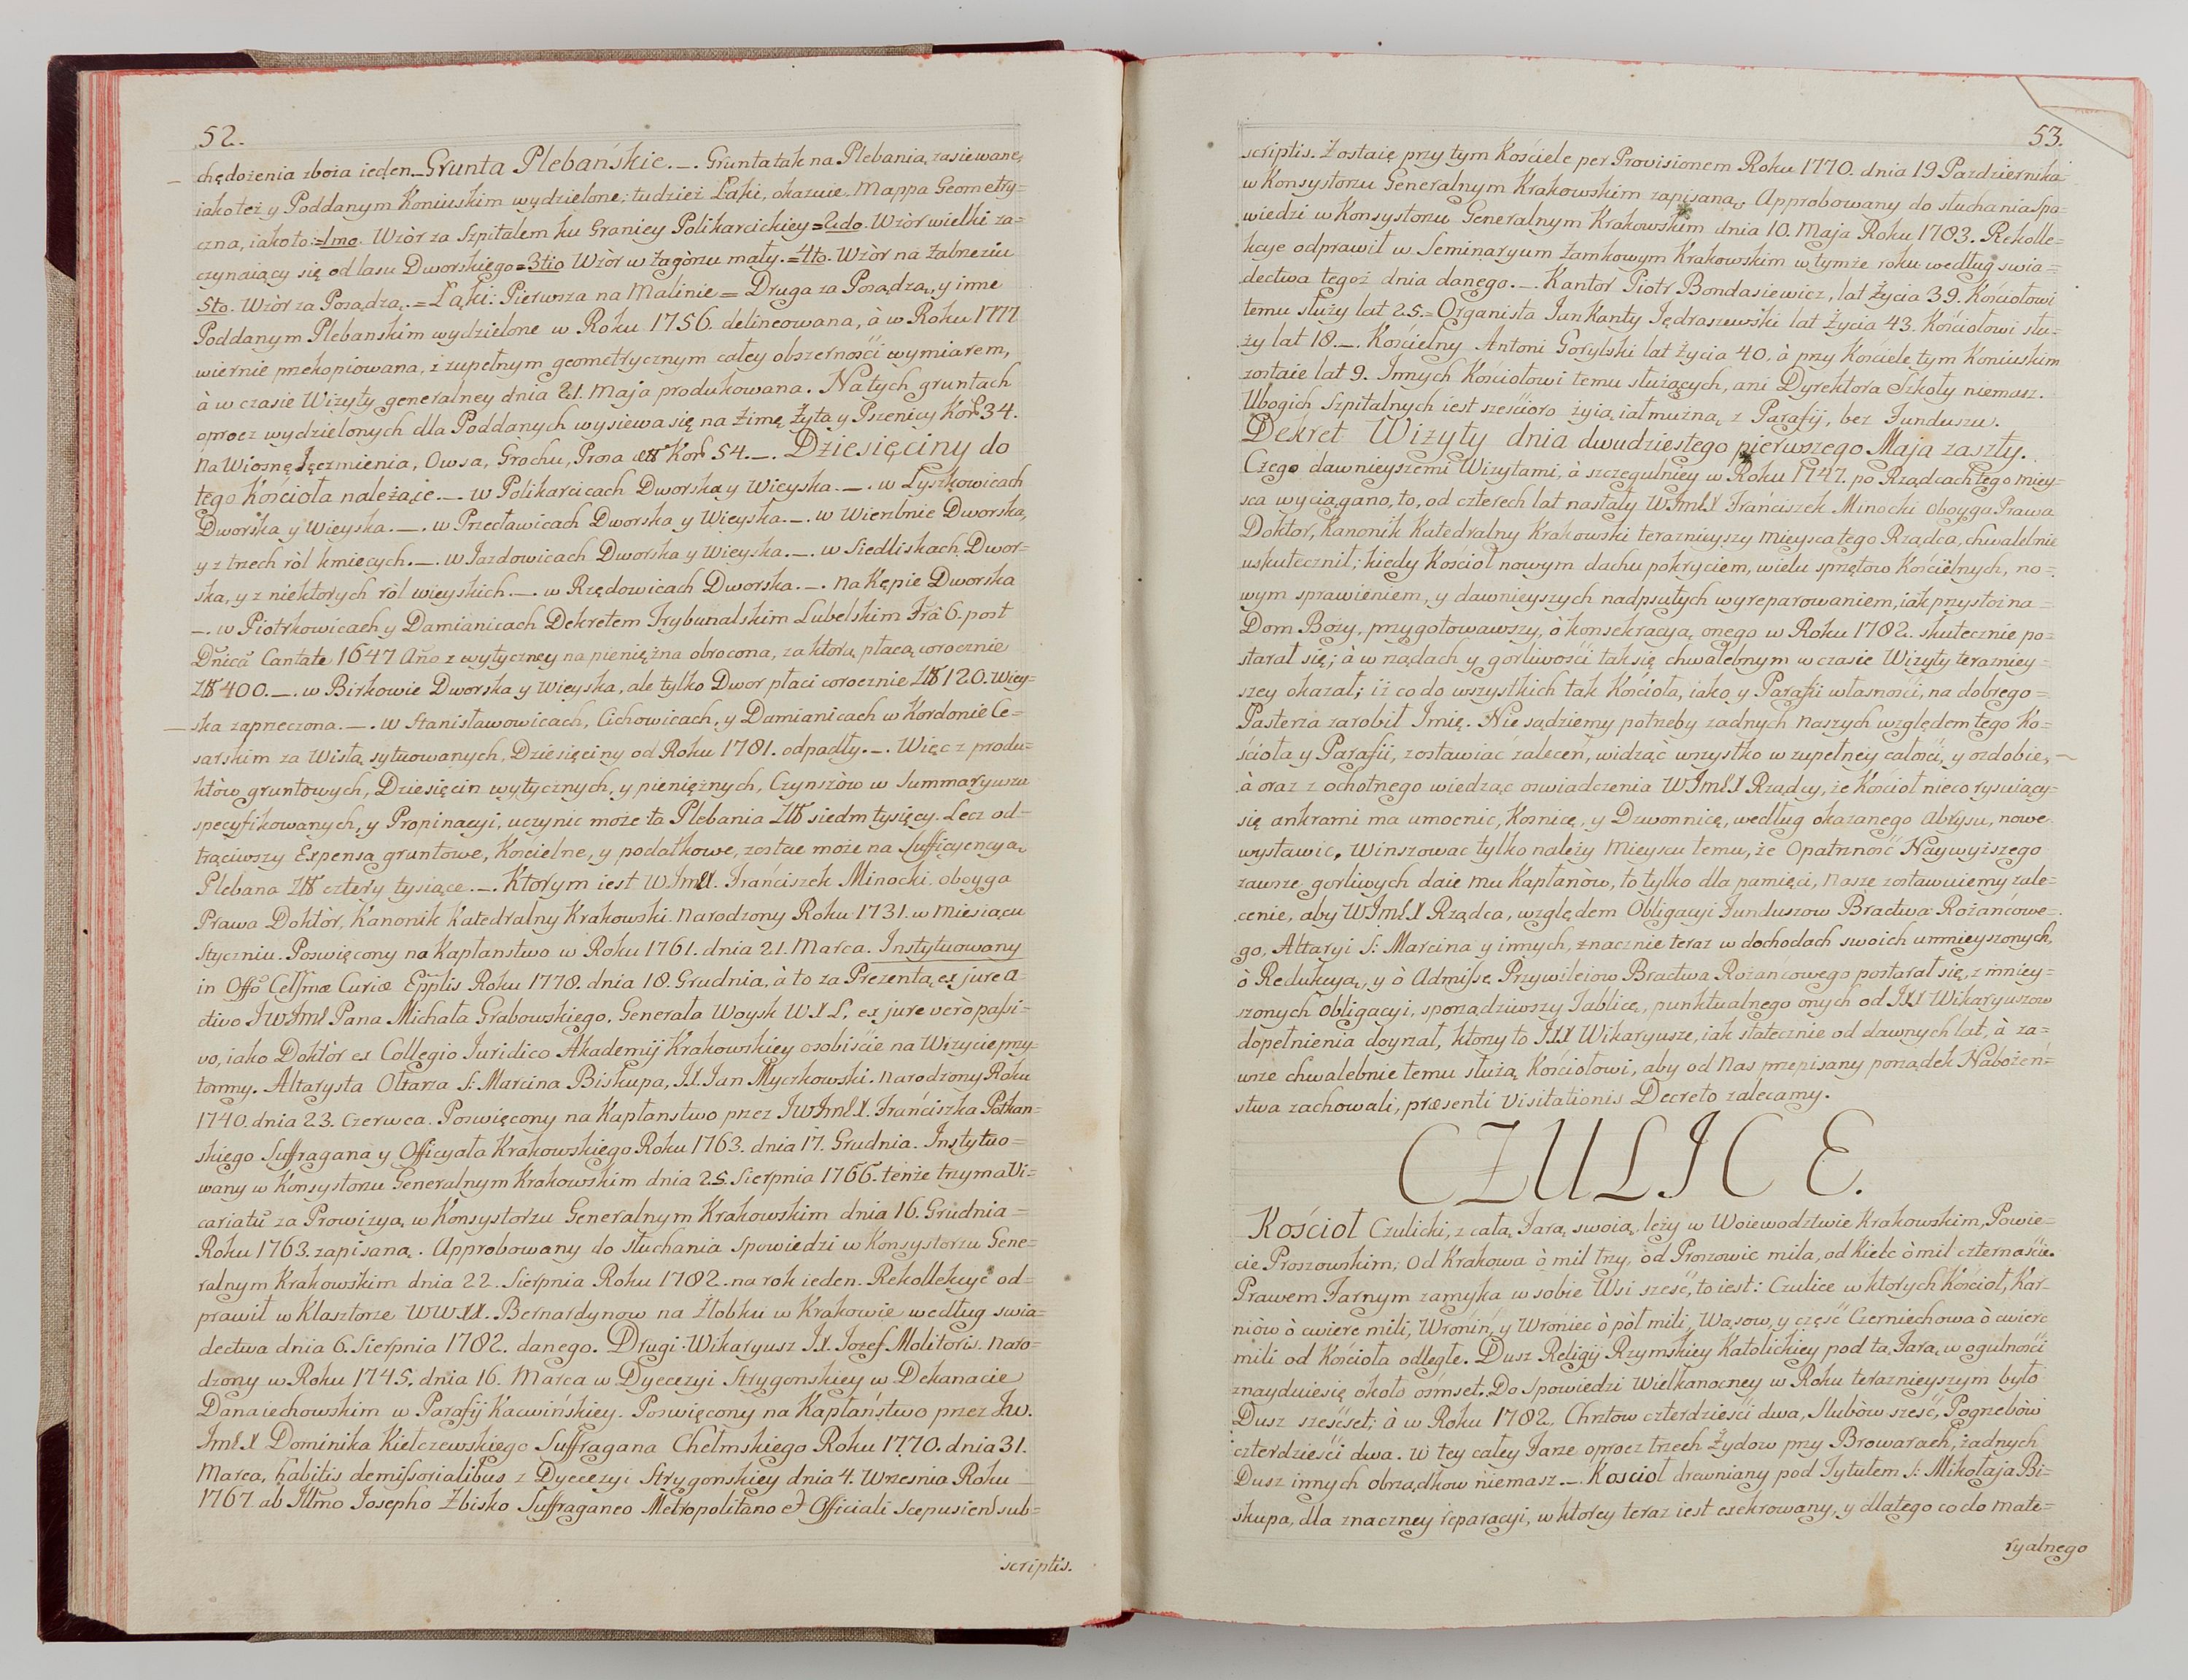 52.
chędożenia zboża ieden._Grunta Plebańskie._. Grunta tak na Plebanią zasiewane,
iako też y Poddanym Koniuskim wydzielone; tudzież Łąki, okazuie Mappa Geometry=
czna, iako to:=1mo. Wzòr za Szpitalem ku Granicy Polikarcickiey=2do. Wzòr wielki za=
czynaiący się od lasu Dworskiego=3tio Wzòr w Zagòrzu mały.=4to. Wzòr na Żabnezin
5to. Wzòr za Posądzą.=Łąki: Pierwsza na Malinie=Druga za Posądzą, y inne
Poddanym Plebanskim wydzielone w Roku 1756. delineowana, à w Roku 1777
wiernie przekopiowana, z zupełnym geometrycznym całey obszernośći wymiarem,
à w czasie Wizyty generalney dnia 21. Maja produkowana. Na tych gruntach
oprocz wydzielonych dla Poddanych wysiewa się na Zimę Żyta y Pszenicy Kor. 34.
Na Wiosnę Jęczmienia, Owsa, Grochu, Prosa Kor 54._. Dziesięciny do
tego Kościoła należące._. w Polikarcicach Dworska y Wieyska._. w Łyszkowicach
Dworska y Wieyska._. w Przecławicach Dworska y Wieyska._. w Wierzbnie Dworska,
y z trzech ról kmiecych._. w Jazdowicach Dworska y Wieyska._. w Siedliskach Dwor=
ska, y z niektorych ról wieyskich._. w Rzędowicach Dworska._. Na Kępie Dworska
_. w Piotrkowicach y Damianicach Dekretem Trybunalskim Lubelskim Fra 6. post
Dnicã Cantate 1647 Año z wytyczney na pieniężną obrocona, za ktorą płacą corocznie
Zł 400._. w Birkowie Dworska y Wieyska, ale tylko Dwor płaci corocznie Zł 120. Wiey=
ska zaprzeczona._. w Stanisławowicach, Cichowicach, y Damianicach w Kordonie Ce=
sarskim za Wisłą sytuowanych, Dziesięciny od Roku 1781. odpadły._. Więc z produ=
któw gruntowych, Dziesięcin wytycznych, y pieniężnych, Czynszòw w Summaryuszu
specyfikowanych, y Propinacyi, uczynic może ta Plebania Zł siedm tysięcy. Lecz od=
trąciwszy Expensa gruntowe, Kościelne, y podatkowe, zostae może na Sufficyencyą
Plebana Zł cztery tysiące._. Ktorym iest WJmX. Franciszek Minocki oboyga
Prawa Doktòr, Kanonik Katedralny Krakowski. Narodzony Roku 1731. w Miesiącu
Styczniu. Poswięcony na Kapłanstwo w Roku 1761. dnia 21. Marca. Instytuowany
in Offo Celsmæ Curiæ Epplis Roku 1778. dnia 18. Grudnia, à to za Prezentą, ex jure a=
ctivo JWJmć Pana Michała Grabowskiego, Generała Woysk W.X.L. ex jure verò passi=
vo, iako Doktòr ex Collegio Juridico Akademij Krakowskiey osobiście na Wizycie przy=
tomny. Altarysta Ołtarza S: Marcina Biskupa, J.X. Jan Myczkowski. Narodzony Roku
1740. dnia 23. Czerwca. Poswięcony na Kapłanstwo przez JWJmćX. Franciszka Potkan=
skiego Suffragana y Officyała Krakowskiego Roku 1763. dnia 17. Grudnia. Instytuo=
wany w Konsystorzu Generalnym Krakowskim dnia 25. Sierpnia 1766. tenże trzyma Vi=
cariatũ za Prowizyą w Konsystorzu Generalnym Krakowskim dnia 16. Grudnia=
Roku 1763. zapisaną. Approbowany do słuchania Spowiedzi w Konsystorzu Gene=
ralnym Krakowskim dnia 22. Sierpnia Roku 1782. na rok ieden. Rekollekcye od=
prawił w Klasztorze WW.XX. Bernardynow na Żłobku w Krakowie według swia=
dectwa dnia 6. Sierpnia 1782. danego. Drugi Wikaryusz J.X. Jozef Molitoris. Naro=
dzony w Roku 1745. dnia 16. Marca w Dyecezyi Strygonskiey w Dekanacie
Danaiechowskim w Parafij Kacwińskiey. Poswięcony na Kapłaństwo przez Jw.
JmćX Dominika Kiełczewskiego Suffragana Chełmskiego Roku 1770. dnia 31.
Marca, habitis demissorialibus z Dyecezyi Strygonskiey dnia 4. Wrzesnia Roku
1767. ab Illmo Josepho Zbisko Suffraganeo Metropolitano et Officiali Scepusien sub=
scriptis.
53.
scriptis. Zostaię przy tym Kościele per Provisionem Roku 1770. dnia 19. Pazdziernika
w Konsystorzu Generalnym Krakowskim zapisaną. Approbowany do słuchania Spo=
wiedzi w Konsystorzu Generalnym Krakowskim dnia 10. Maja Roku 1783. Rekolle=
kcye odprawił w Seminaryum Zamkowym Krakowskim w tymże roku według swia=
dectwa tegoż dnia danego._. Kantor Piotr Bondasiewicz, lat Życia 39. Kościołowi
temu służy lat 25.=Organista Jan Kanty Jędraszewski lat Życia 43. Kościołowi słu=
ży lat 18._. Kościelny Antoni Gorylski lat Życia 40. à przy Kościele tym Koniuskim
zostaie lat 9. Innych Kościołowi temu służących, ani Dyrektora Szkoły niemasz.
Ubogich Szpitalnych iest sześcioro żyią iałmużną z Parafij, bez Funduszu.
Dekret Wizyty dnia dwudziestego pierwszego Maja zaszły.
Czego dawnieyszemi Wizytami, à szczegulniey w Roku 1747. po Rządcach tego miey=
sca wyciągano, to, od czterech lat nastały WJmćX Franciszek Minocki oboyga Prawa
Doktor, Kanonik Katedralny Krakowski terazniyszy Mieysca tego Rządca, chwalebnie
uskutecznił; kiedy Kościoł nowym dachu pokryciem, wielu sprzętow Kościelnych, no=
wym sprawieniem, y dawnieyszych nadpsutych wyreparowaniem, iak przystoi na=
Dom Boży, przygotowawszy, ò konsekracyą onego w Roku 1782. skutecznie po=
starał się; à w rządach y gorliwośći tak się chwalebnym w czasie Wizyty terazniey=
szey okazał; iż co do wszystkich tak Kościoła, iako y Parafii własnośći, na dobrego=
Pasterza zarobił Imię. Nie sądziemy potrzeby żadnych Naszych względem tego Ko=
ścioła y Parafii, zostawiać zaleceń, widząć wszystko w zupełney całości, y ozdobie,
à oraz z ochotnego wiedząc oswiadczenia WJmćX Rządcy, że Kościoł nieco rysuiący=
się ankrami ma umocnic, Kosnicę, y Dzwonnicę, według okazanego Abrysu, nowe
wystawic. Winszowac tylko należy Mieyscu temu, że Opatrzność Naywyższego
zawsze gorliwych daie mu Kapłanòw, to tylko dla pamięci, Nasze zostawuiemy zale=
cenie, aby WJmćX Rządca, względem Obligacyi Funduszow Bractwa Rożańcowe=
go, Altaryi S: Marcina y innych, znacznie teraz w dochodach swoich umnieyszonych,
ò Redukcyą, y ò Admissę Przywileiow Bractwa Rożańcowego postarał się, z mniey=
szonych Obligacyi, sporządziwszy Tablicę, punktualnego onych od JXX Wikaryuszow
dopełnienia doyrzał, ktorzy to JXX Wikaryusze, iak statecznie od dawnych lat, à za=
wsze chwalebnie temu służą Kościołowi, aby od Nas przepisany porządek Nabożeń=
stwa zachowali, præsenti Visitationis Decreto zalecamy.
CZULICE.
Kościoł Czulicki, z całą Farą swoią leży w Woiewodztwie Krakowskim, Powie=
cie Proszowskim, Od Krakowa ò mil trzy, od Proszowic mila, od Kielc ò mil czternaście.
Prawem Farnym zamyka w sobie Wsi sześć, to iest: Czulice w ktorych Kościoł, Kar=
niòw ò cwierc mili, Wronin, y Wroniec ò pòł mili, Wąsow, y część Czerniechowa ò cwierc
mili od Kościoła odległe. Dusz Religij Rzymskiey Katolickiey pod tą Farą w ogulności
znayduiesię około osmset. Do Spowiedzi Wielkanocney w Roku teraznieyszym było
Dusz sześćset; à w Roku 1782. Chrztow czterdzieśći dwa, Slubòw sześć, Pogrzebòw
czterdzieśći dwa. W tey całey Farze oprocz trzech Żydow przy Browarach, żadnych
Dusz innych obrządkow niemasz._. Kościoł drewniany pod Tytułem S: Mikołaja Bi=
skupa, dla znaczney reparacyi, w ktorey teraz iest exekrowany, y dlatego co do mate=
ryalnego